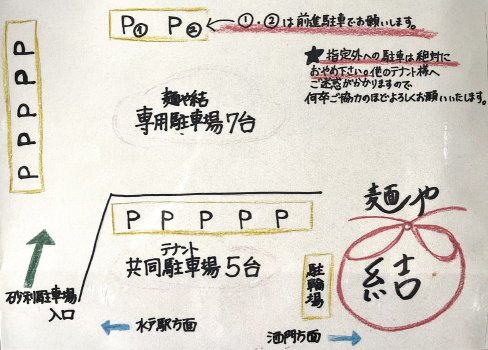 P① P② ①.②は前進駐車でお願いします。
★指定外への駐車は絶対に
おやめ下さい。他のテナント様へ
ご迷惑がかかりますので
何卒ご協力のほどよろしくお願いいたします。
P
P
P
P
P
麺や結
専用駐車場7台
P P P P P
テナント
共同駐車場5台
駐輪場
麺や
結
砂利駐車場
入口
水戸駅方面
酒門方面